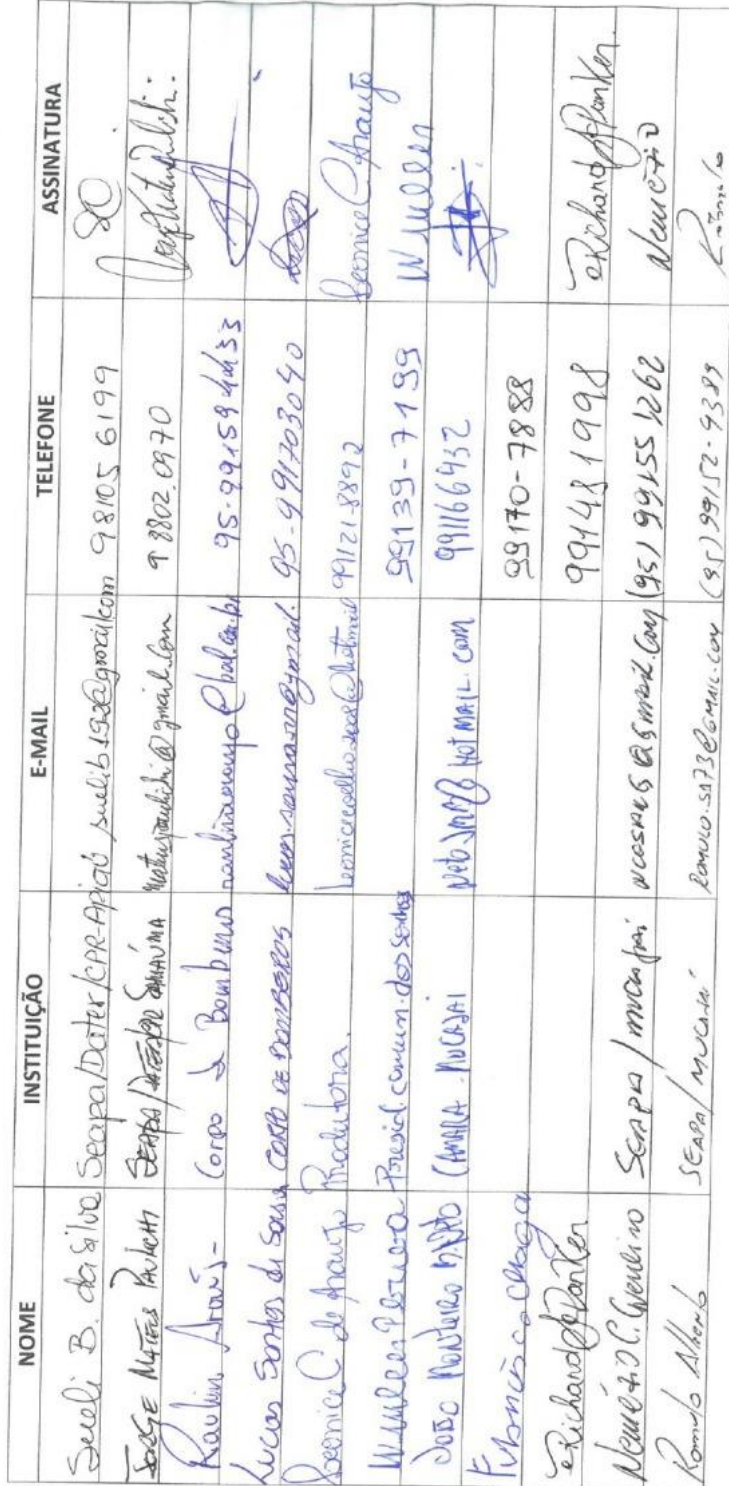 NOME INSTITUIÇÃO E-MAIL TELEFONE ASSINATURA
Sueli B. da Silva Seapa/Dater/CPR-Apiaú suelib192@gmail.com 98105 6199
JORGE MATEUS PAULICHI SEAPA/ SAMAÚMA @gmail.com 9 8802.0970
Raulim Araujo Corpo d Bombeiros raulimaraujo@bol.com.br 95-991594433
Lucas Santos de Sousa CORPO DE BOMBEIROS 95-991703040
Leonice C de Araujo Produtora. 99121-8892 Leonice C Araujo
Presid. comun. dos Sonhos 99139-7199
JOÃO MONTEIRO CAMARA - MUCAJAI HOTMAIL.COM 991166432
Francisco Chaga 99170-7888
Richard Parker 991481998 Richard Parker
Nemézio C. Seapa / mucajai @gmail.com (95) 991551262 Nemézio
Romulo SEAPA/ MUCAJAÍ ROMULO.SA73@GMAIL.COM (95) 99152-9389 Romulo